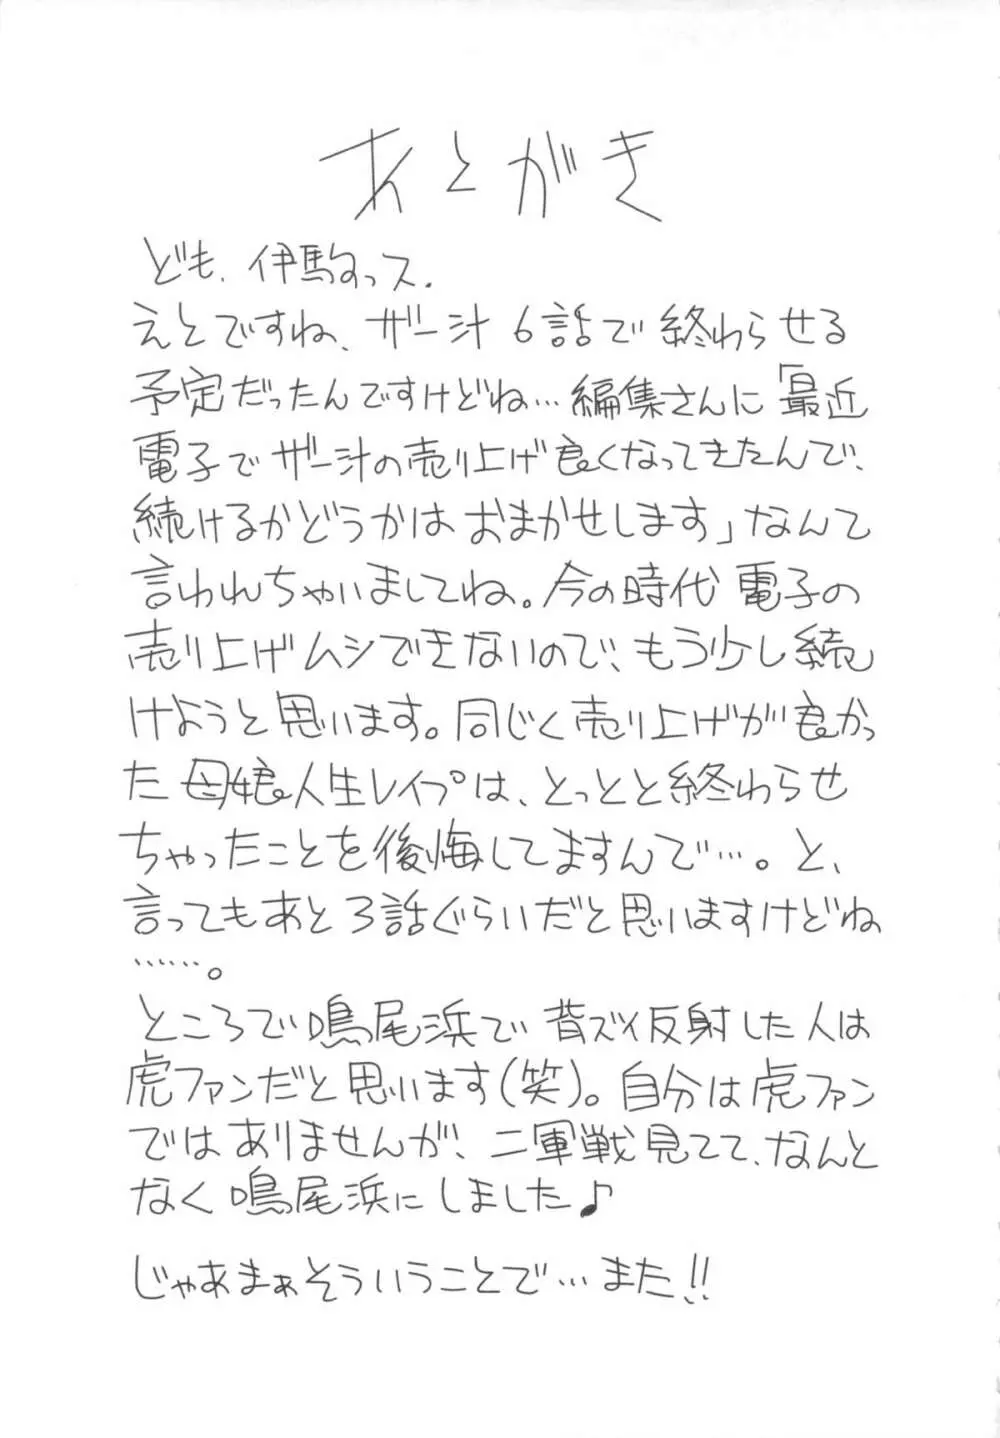 あとがき
ども、伊駒っス.
えとですね、ザー汁 6話で終わらせる
予定だったんですけどね…編集さんに「最近
電子でザー汁の売り上げ良くなってきたんで、
続けるかどうかは おまかせします」なんて
言われちゃいましてね。今の時代 電子の
売り上げムシできないので、もう少し続
けようと思います。同じく売り上げが良かっ
た 母娘人生レイプは、とっとと終わらせ
ちゃったことを後悔してますんで…。と、
言ってもあと3話ぐらいだと思いますけどね
……。
ところで鳴尾浜で背ズイ反射した人は
虎ファンだと思います(笑)。自分は虎ファン
ではありませんが、二軍戦見てて、なんと
なく鳴尾浜にしました♪
じゃあまぁそういうことで…また!!